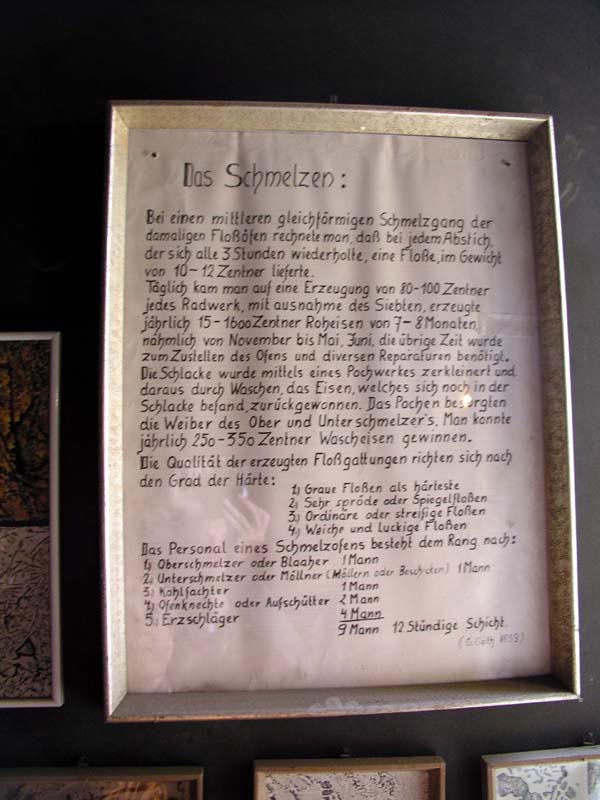 Das Schmelzen:
Bei einen mittleren gleichförmigen Schmelzgang der
damaligen Floßöfen rechnete man, daß bei jedem Abstich,
der sich alle 3 Stunden wiederholte, eine Floße, im Gewicht
von 10-12 Zentner lieferte.
Täglich kam man auf eine Erzeugung von 80-100 Zentner
jedes Radwerk, mit ausnahme des Siebten, erzeugte
jährlich 15-1600 Zentner Roheisen von 7-8 Monaten,
nähmlich von November bis Mai, Juni, die übrige Zeit wurde
zum Zustellen des Ofens und diversen Reparaturen benötigt.
Die Schlacke wurde mittels eines Pochwerkes zerkleinert und
daraus durch Waschen, das Eisen, welches sich noch in der
Schlacke befand, zurückgewonnen. Das Pochen besorgten
die Weiber des Ober und Unterschmelzer's. Man konnte
jährlich 250-350 Zentner Wascheisen gewinnen.
Die Qualität der erzeugten Floßgattungen richten sich nach
den Grad der Härte:
1.) Graue Floßen als härteste
2.) Sehr spröde oder Spiegelfloßen
3.) Ordinäre oder streifige Floßen
4.) Weiche und luckige Floßen
Das Personal eines Schmelzofens besteht dem Rang nach:
1.) Oberschmelzer oder Blaaher 1 Mann
2.) Unterschmelzer oder Möllner (Möllern oder Beschicken) 1 Mann
3.) Kohlfachter 1 Mann
4.) Ofenknechte oder Aufschütter 2 Mann
5.) Erzschläger 4 Mann
9 Mann 12 Stündige Schicht.